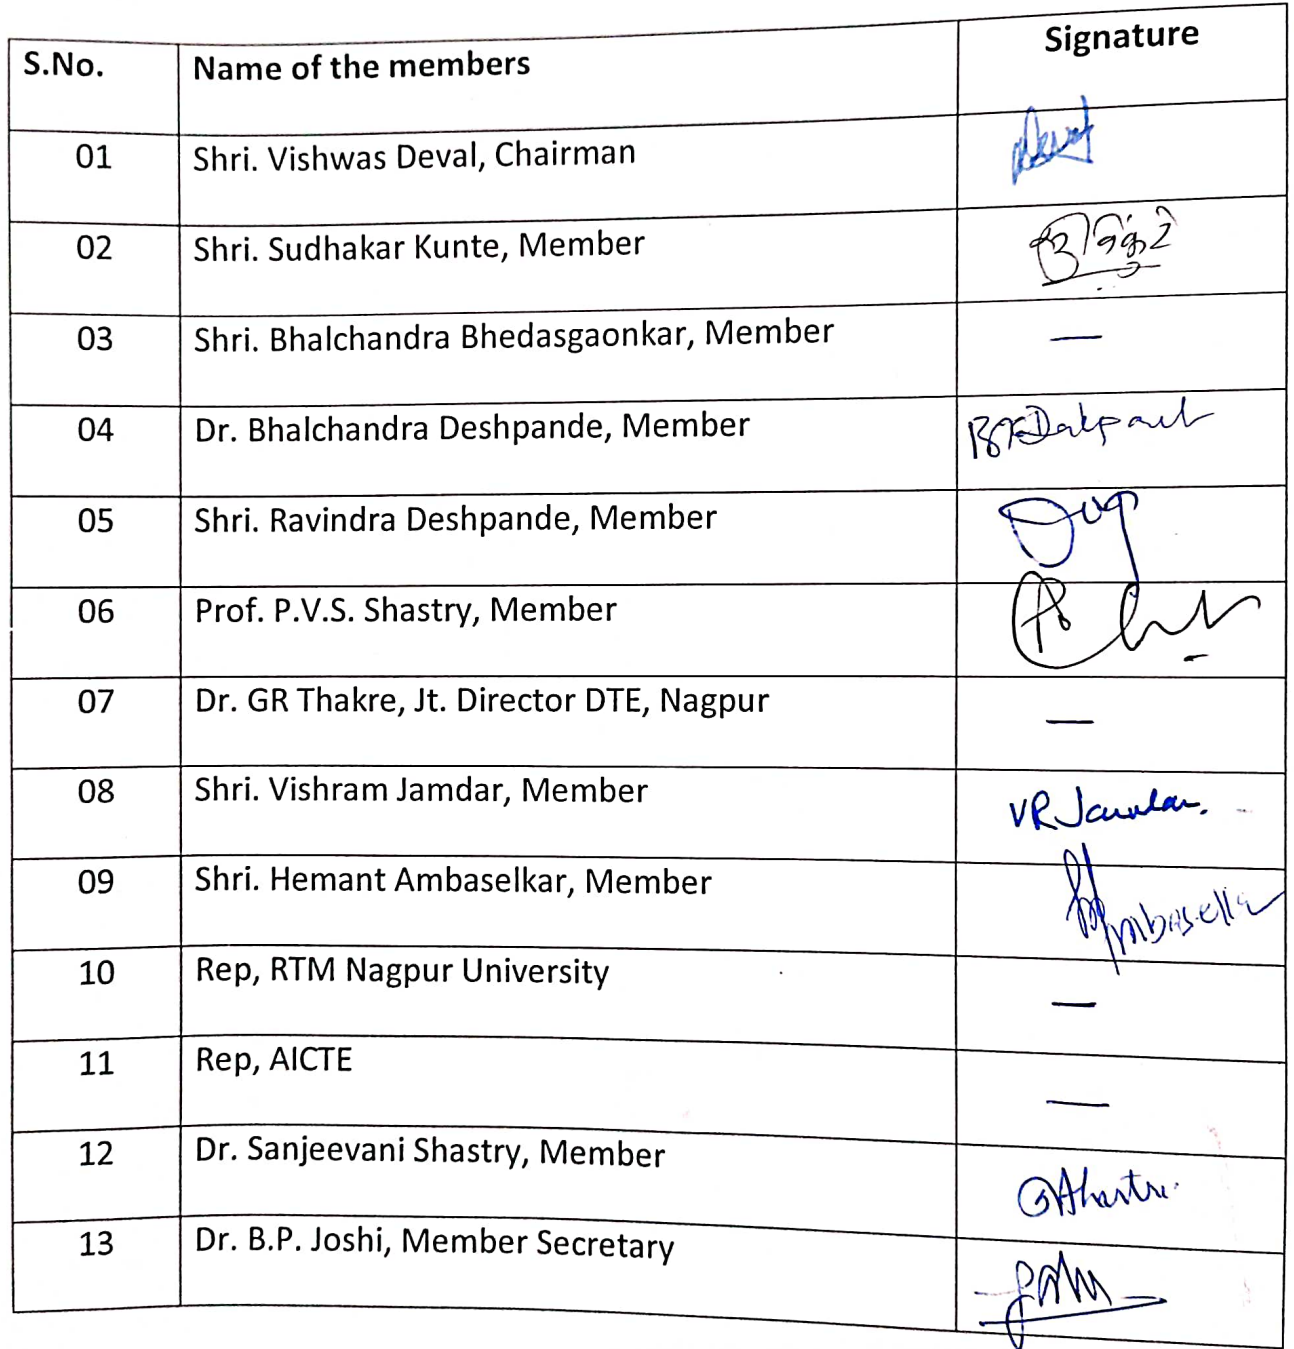 S.No. Name of the members Signature
01 Shri. Vishwas Deval, Chairman
02 Shri. Sudhakar Kunte, Member
03 Shri. Bhalchandra Bhedasgaonkar, Member —
04 Dr. Bhalchandra Deshpande, Member
05 Shri. Ravindra Deshpande, Member
06 Prof. P.V.S. Shastry, Member
07 Dr. GR Thakre, Jt. Director DTE, Nagpur —
08 Shri. Vishram Jamdar, Member VR Jamdar.
09 Shri. Hemant Ambaselkar, Member
10 Rep, RTM Nagpur University —
11 Rep, AICTE —
12 Dr. Sanjeevani Shastry, Member
13 Dr. B.P. Joshi, Member Secretary